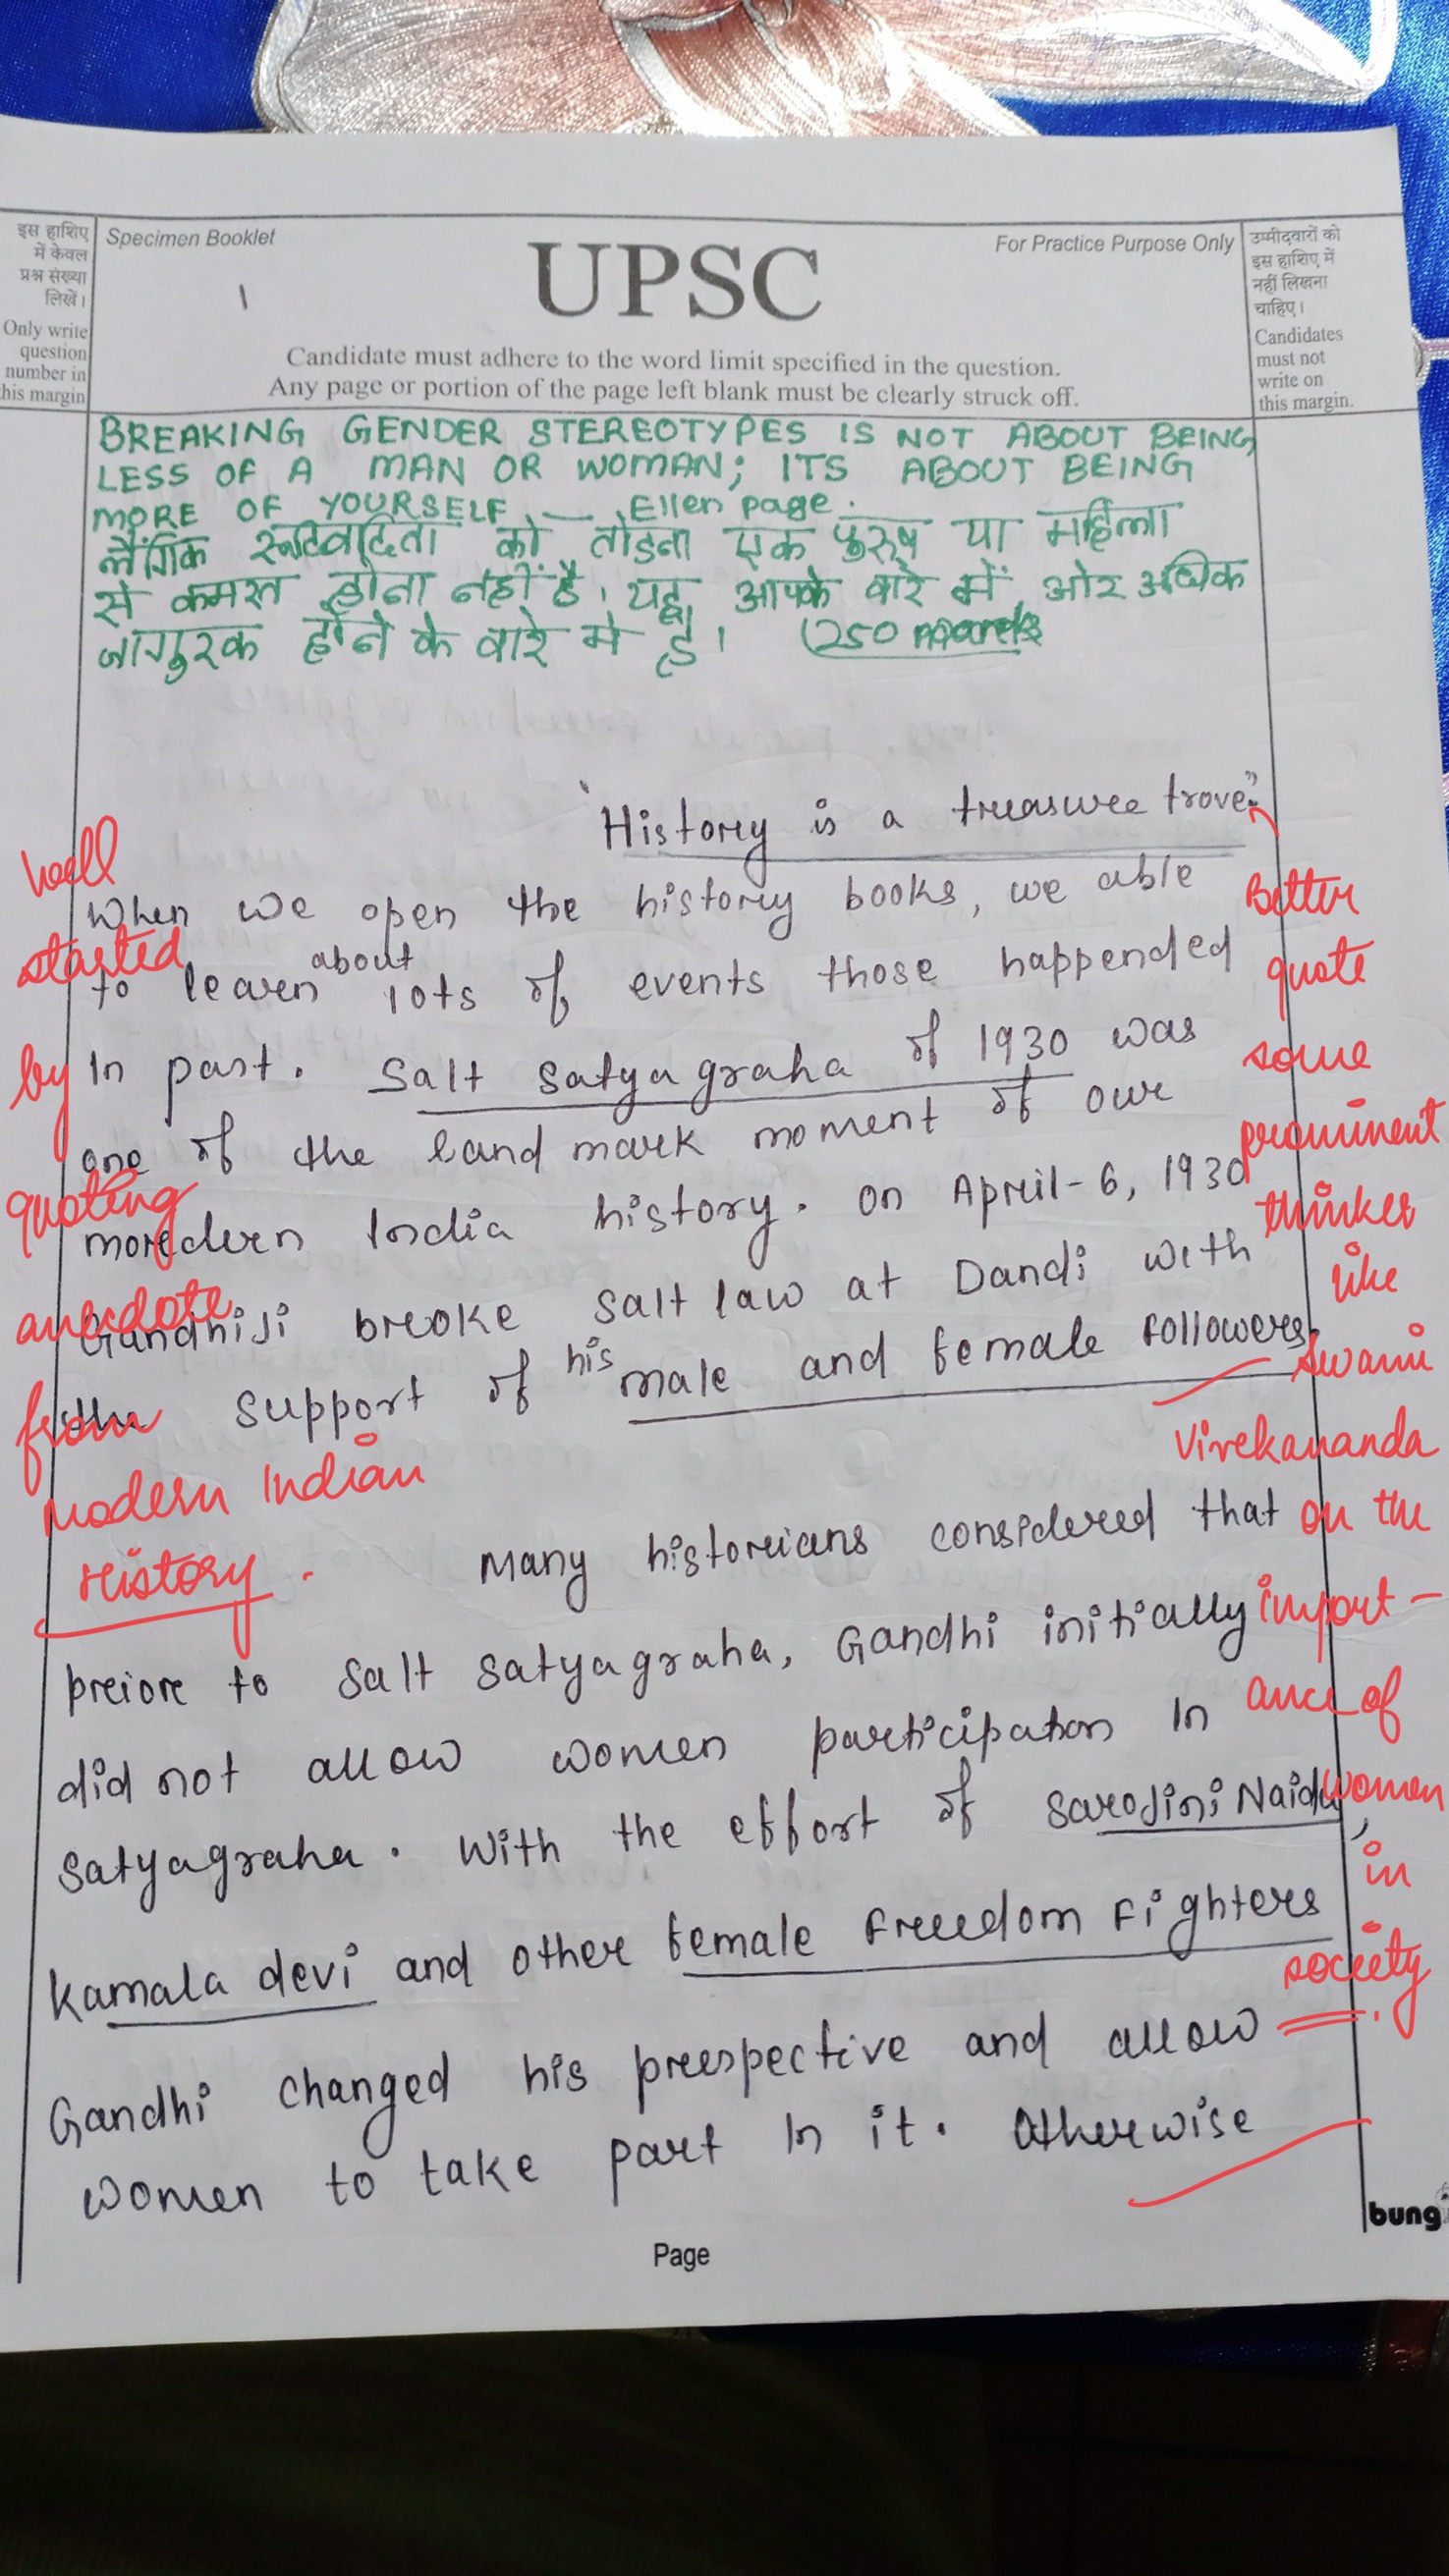 इस हाशिए
में केवल
प्रश्न संख्या
लिखें।
Only write
question
number in
this margin
Specimen Booklet
1
UPSC
For Practice Purpose Only
Candidate must adhere to the word limit specified in the question.
Any page or portion of the page left blank must be clearly struck off.
उम्मीदवारों को
इस हाशिए में
नहीं लिखना
चाहिए।
Candidates
must not
write on
this margin.
BREAKING GENDER STEREOTYPES IS NOT ABOUT BEING
LESS OF A MAN OR WOMAN; ITS ABOUT BEING
MORE OF YOURSELF — Ellen page.
लैंगिक रूढिवादिता को तोडना एक पुरुष या महिला
से कमरत होना नहीं है। यह आपके बारे में ओर अधिक
जागुरक होने के बारे मे है। (250 marks
"History is a treasure trove."
When we open the history books, we able
to learn about lots of events those happended
In past. Salt Satyagraha of 1930 was
one of the land mark moment of our
moredern India history. On April-6, 1930
Gandhiji broke salt law at Dandi with
the support of his male and female followers.
Many historians considered that
priore to salt satyagraha, Gandhi initially
did not allow women participaton In
Satyagraha. With the effort of Sarojini Naidu,
Kamala devi and other female freedom fighters
Gandhi changed his prespective and allow
women to take part In it. Otherwise
well
started
by
quoting
anecdote
from
Modern Indian
History.
Better
quote
some
prominent
thinker
like
Swami
Vivekananda
on the
import-
ance of
women
in
society.
Page
bung